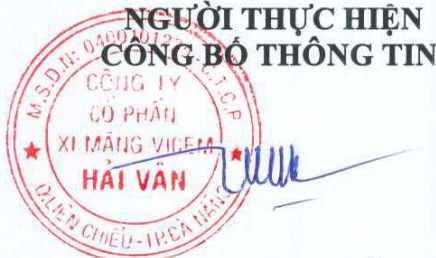 NGƯỜI THỰC HIỆN
CÔNG BỐ THÔNG TIN
M.S.D.N: C.T.C.P
CÔNG TY
CỔ PHẦN
XI MĂNG VICEM
HẢI VÂN
Q.LIÊN CHIỂU-TP.ĐÀ NẴNG